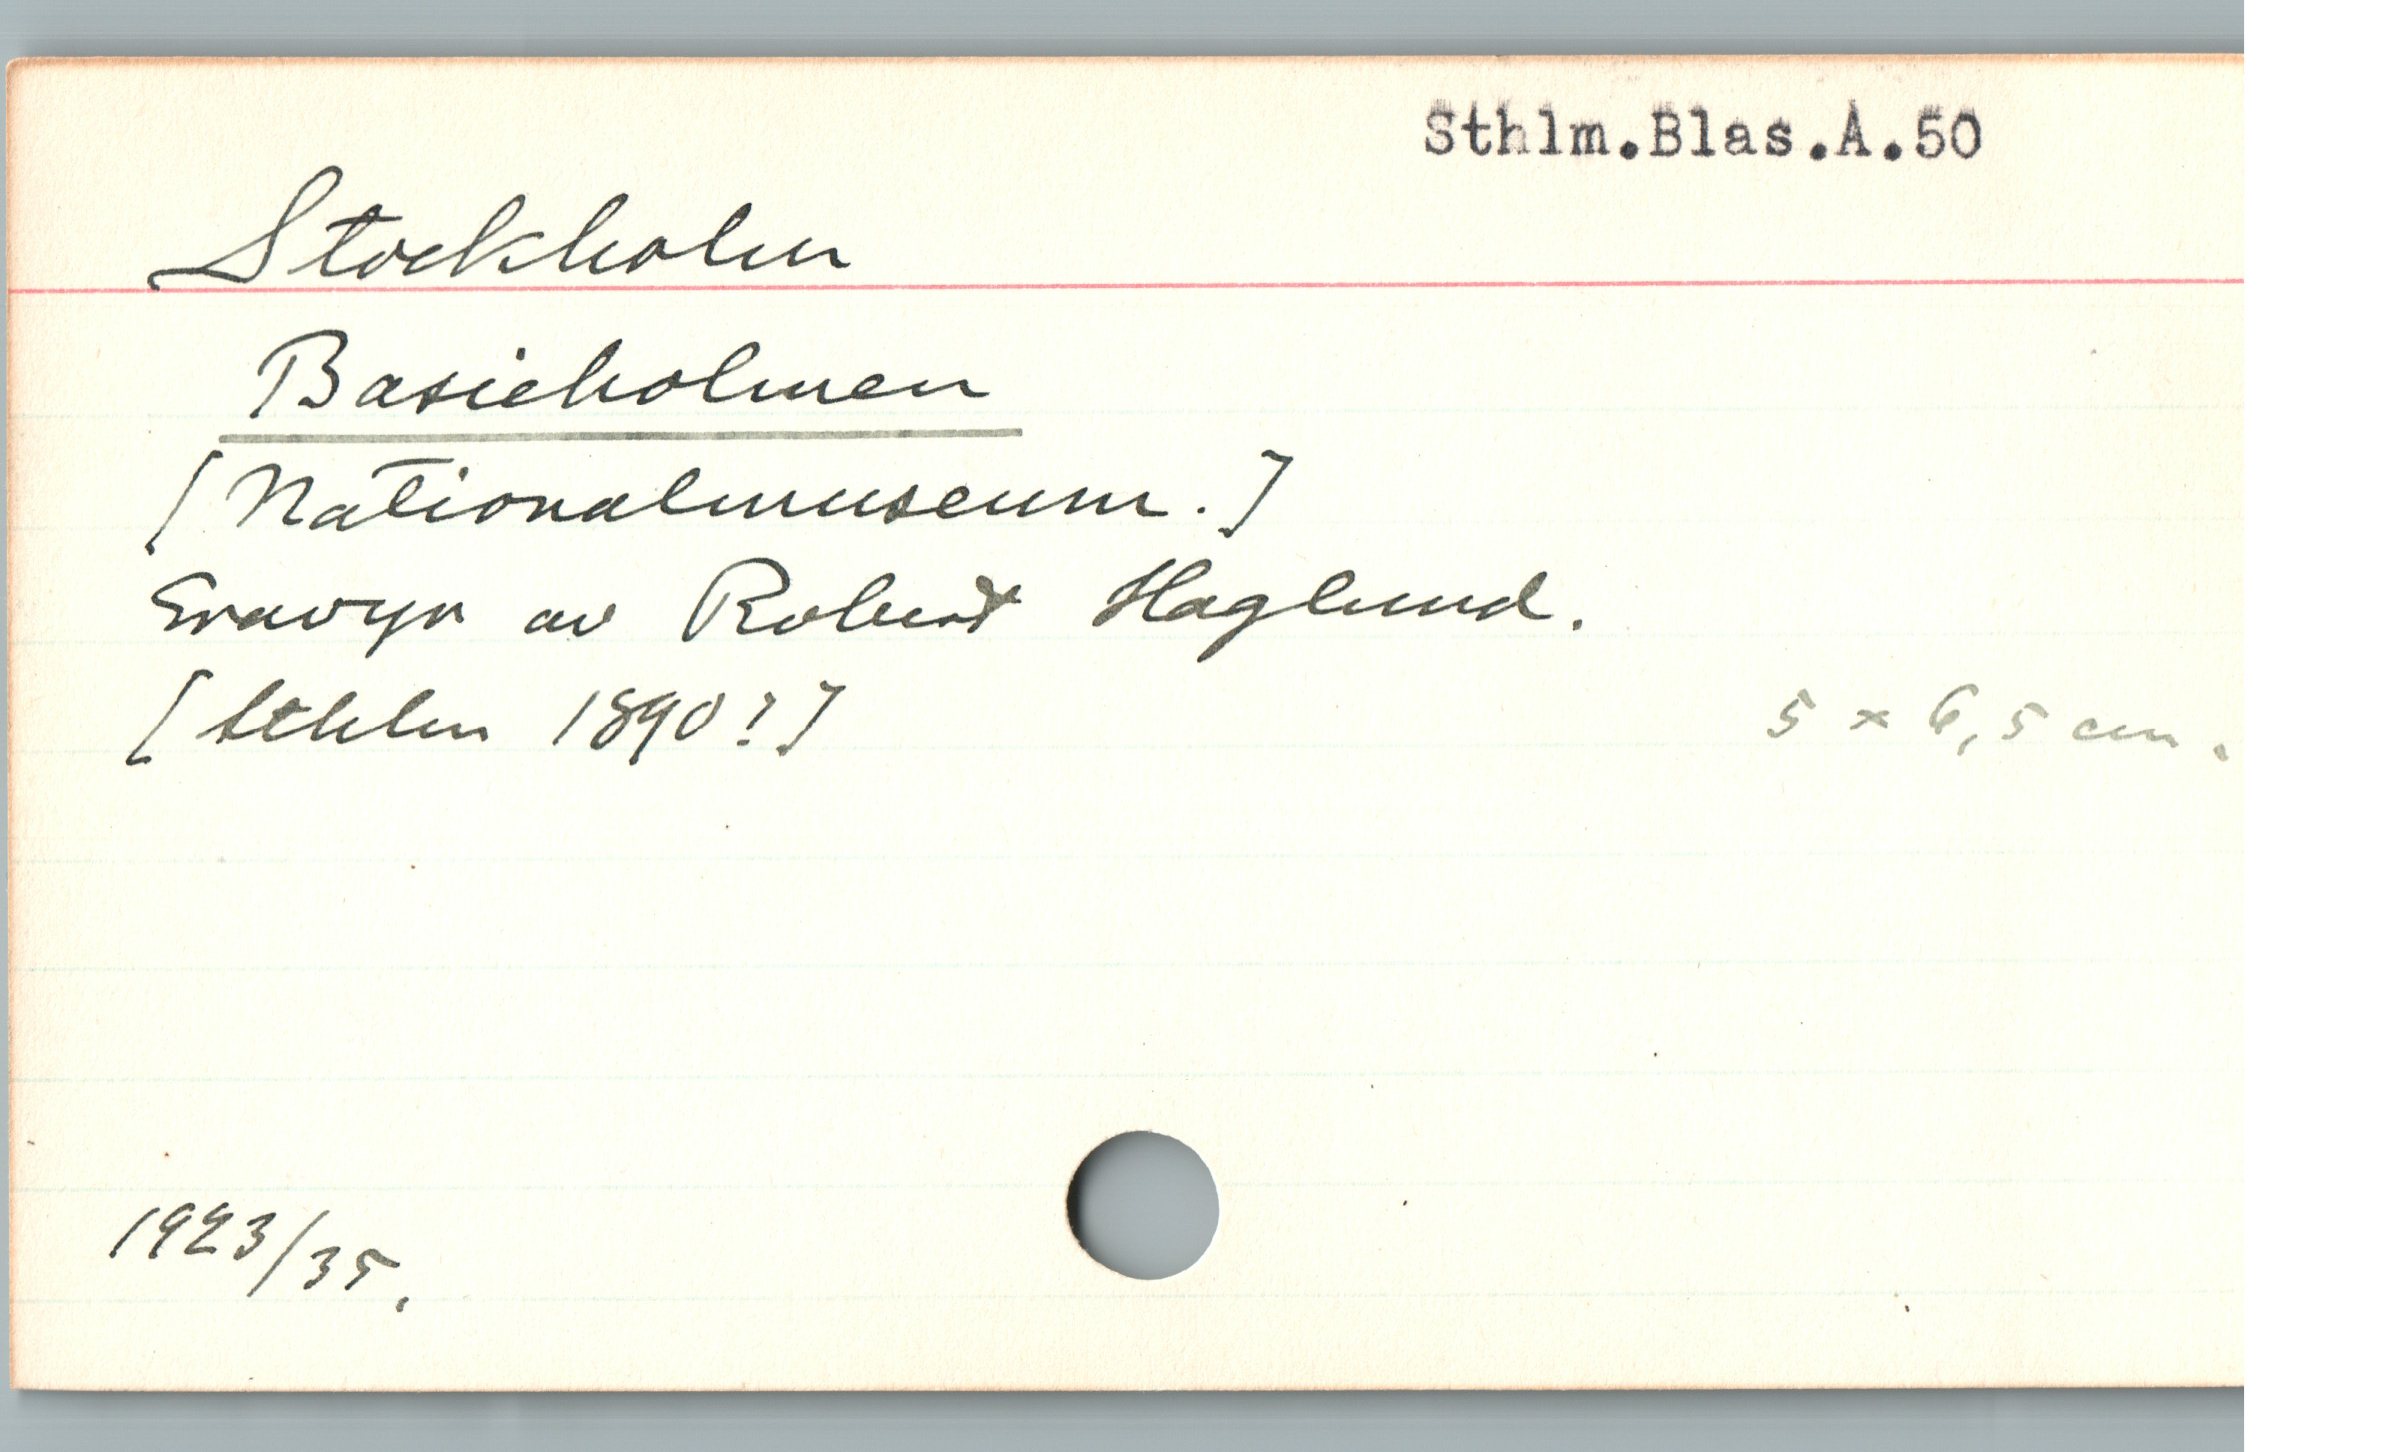 Sthlm.Blas.A.50
Stockholm
Basieholmen
[Nationalmuseum.]
Gravyr av Robert Haglund.
[Sthlm 1890?]
5 x 6,5 cm.
1923/35.